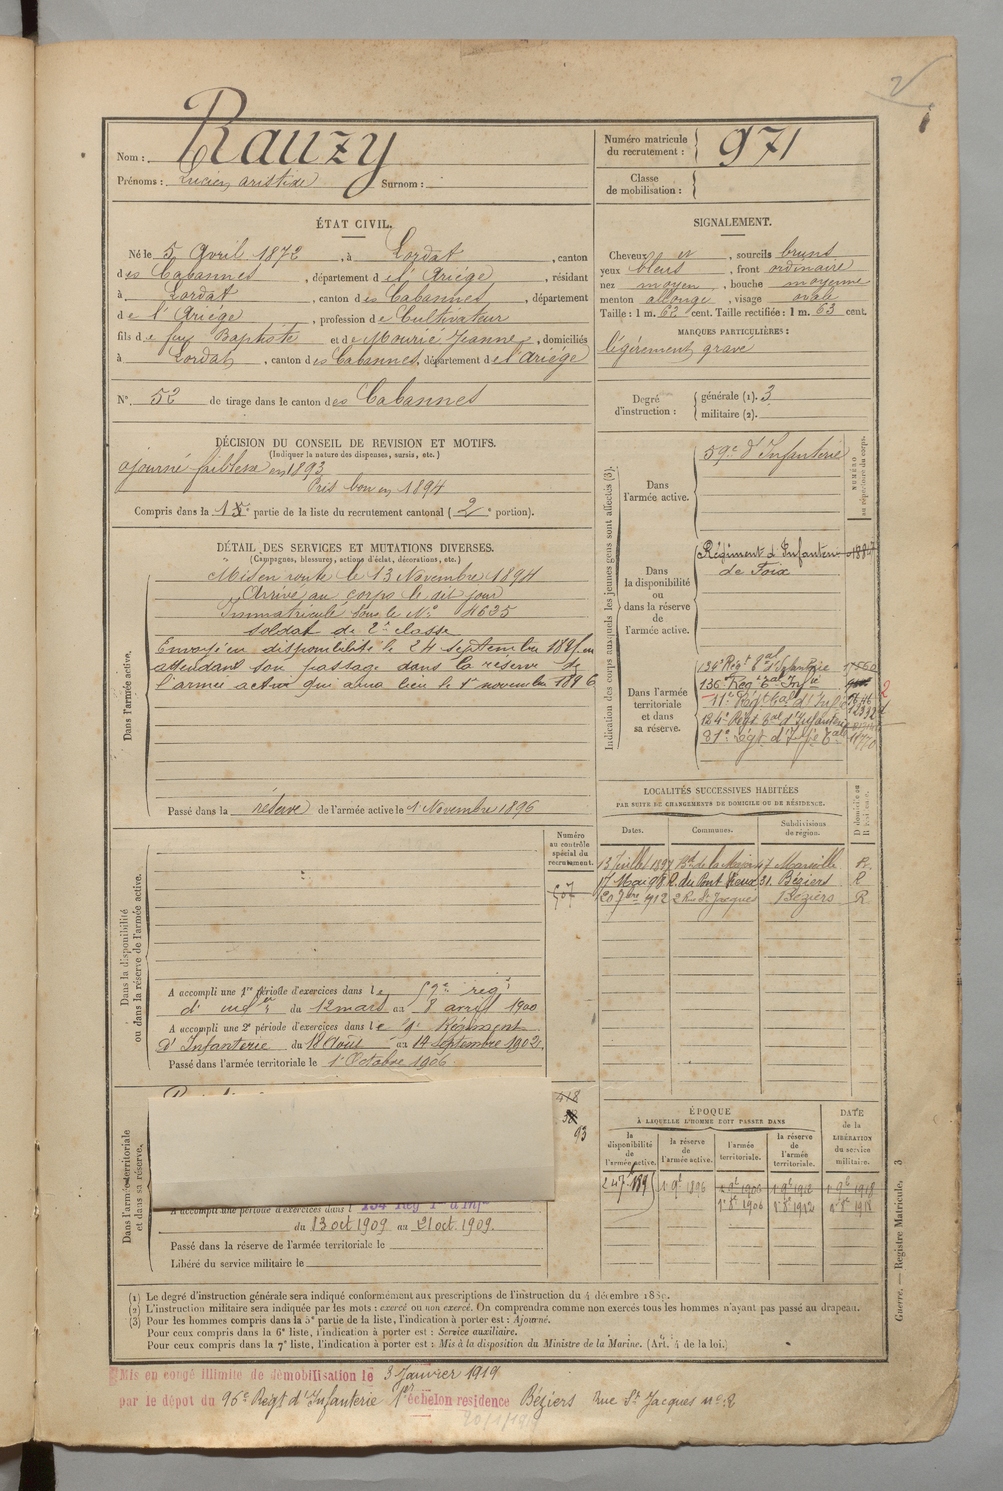 2
Nom : Rauzy
Prénoms : Lucien aristide Surnom :
Numéro matricule du recrutement : 971
Classe de mobilisation :
ÉTAT CIVIL.
Né le 5 Avril 1872, à Lordat, canton
des Cabannes, département de l'Ariége, résidant
à Lordat, canton des Cabannes, département
de l'Ariége, profession de Cultivateur
fils de feu Baptiste et de Mourié Jeanne, domiciliés
à Lordat, canton des Cabannes, département de l'Ariége
N° 52 de tirage dans le canton des Cabannes
SIGNALEMENT.
Cheveux et, sourcils bruns
yeux bleus, front ordinaire
nez moyen, bouche moyenne
menton allongé, visage ovale
Taille : 1 m. 62 cent. Taille rectifiée : 1 m. 63 cent.
MARQUES PARTICULIÈRES :
légèrement gravé
Degré d'instruction : générale (1). 3
militaire (2).
DÉCISION DU CONSEIL DE REVISION ET MOTIFS.
(Indiquer la nature des dispenses, sursis, etc.)
ajourné faiblesse en 1893
Pris bon en 1894
Compris dans la 1e partie de la liste du recrutement cantonal (2e portion).
DÉTAIL DES SERVICES ET MUTATIONS DIVERSES.
(Campagnes, blessures, actions d'éclat, décorations, etc.)
Dans l'armée active.
Mis en route le 13 Novembre 1894
Arrivé au corps le dit jour
Immatriculé sous le N° 4635
soldat de 2e classe
Envoyé en disponibilité le 24 septembre 1895 en
attendant son passage dans la réserve de
l'armée active qui aura lieu le 1er novembre 1896
Passé dans la réserve de l'armée active le 1 Novembre 1896
Indication des corps auxquels les jeunes gens sont affectés (3).
NUMÉRO au répertoire du corps.
Dans l'armée active.
59e d'Infanterie
Dans la disponibilité ou dans la réserve de l'armée active.
Régiment d'Infanterie
de Foix
Dans l'armée territoriale et dans sa réserve.
136e Régt Tal d'Infanterie
136e Régt Tal Infie
11e Régt Tal d'Infie
124e Régt Tal d'Infanterie
81e Régt d'Infie Tale
2
LOCALITÉS SUCCESSIVES HABITÉES
PAR SUITE DE CHANGEMENTS DE DOMICILE OU DE RÉSIDENCE.
Dates. Communes. Subdivisions de région. D domicile ou R résidence.
13 Juillet 1897 Bd de la Mairie 47 Marseille R.
17 Mai 98 R. du Pont Vieux 31. Béziers R
20 7bre 1912 2 Rue St Jacques Béziers R
Numéro au contrôle spécial du recrutement.
507
Dans la disponibilité ou dans la réserve de l'armée active.
A accompli une 1re période d'exercices dans le 59e régt
d'infrie du 12 mars au 8 avril 1900
A accompli une 2e période d'exercices dans le 9e Régiment
d'Infanterie du 18 Août au 14 Septembre 1902.
Passé dans l'armée territoriale le 1er Octobre 1906
Dans l'armée territoriale et dans sa réserve.
93
A accompli une période d'exercices dans l 134 Régt Tl d'Infie
du 13 oct. 1909 au 21 oct. 1909.
Passé dans la réserve de l'armée territoriale le
Libéré du service militaire le
ÉPOQUE À LAQUELLE L'HOMME DOIT PASSER DANS
la disponibilité de l'armée active. la réserve de l'armée active. l'armée territoriale. la réserve de l'armée territoriale.
DATE de la LIBÉRATION du service militaire.
1er 9b 1896 1er 9b 1906 1er 9b 1912 1er 9b 1918
1er 8b 1906 1er 8b 1912 1er 8b 1918
(1) Le degré d'instruction générale sera indiqué conformément aux prescriptions de l'instruction du 4 décembre 1889.
(2) L'instruction militaire sera indiquée par les mots : exercé ou non exercé. On comprendra comme non exercés tous les hommes n'ayant pas passé au drapeau.
(3) Pour les hommes compris dans la 5e partie de la liste, l'indication à porter est : Ajourné.
Pour ceux compris dans la 6e liste, l'indication à porter est : Service auxiliaire.
Pour ceux compris dans la 7e liste, l'indication à porter est : Mis à la disposition du Ministre de la Marine. (Art. 4 de la loi.)
Guerre. — Registre Matricule. 3
Mis en congé illimité de démobilisation le 3 Janvier 1919
par le dépot du 96e Régt d'Infanterie 1er échelon residence Béziers rue St Jacques n° 2